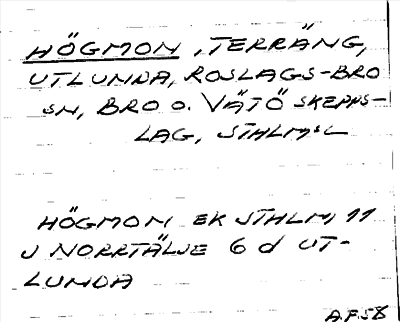 HÖGMON, TERRÄNG,
UTLUNDA, ROSLAGS-BRO
SN, BRO O. VÄTÖ SKEPPS-
LAG, STHLMSL
HÖGMON EK STHLM 11
J NORRTÄLJE 6 d UT-
LUNDA
A.F.58